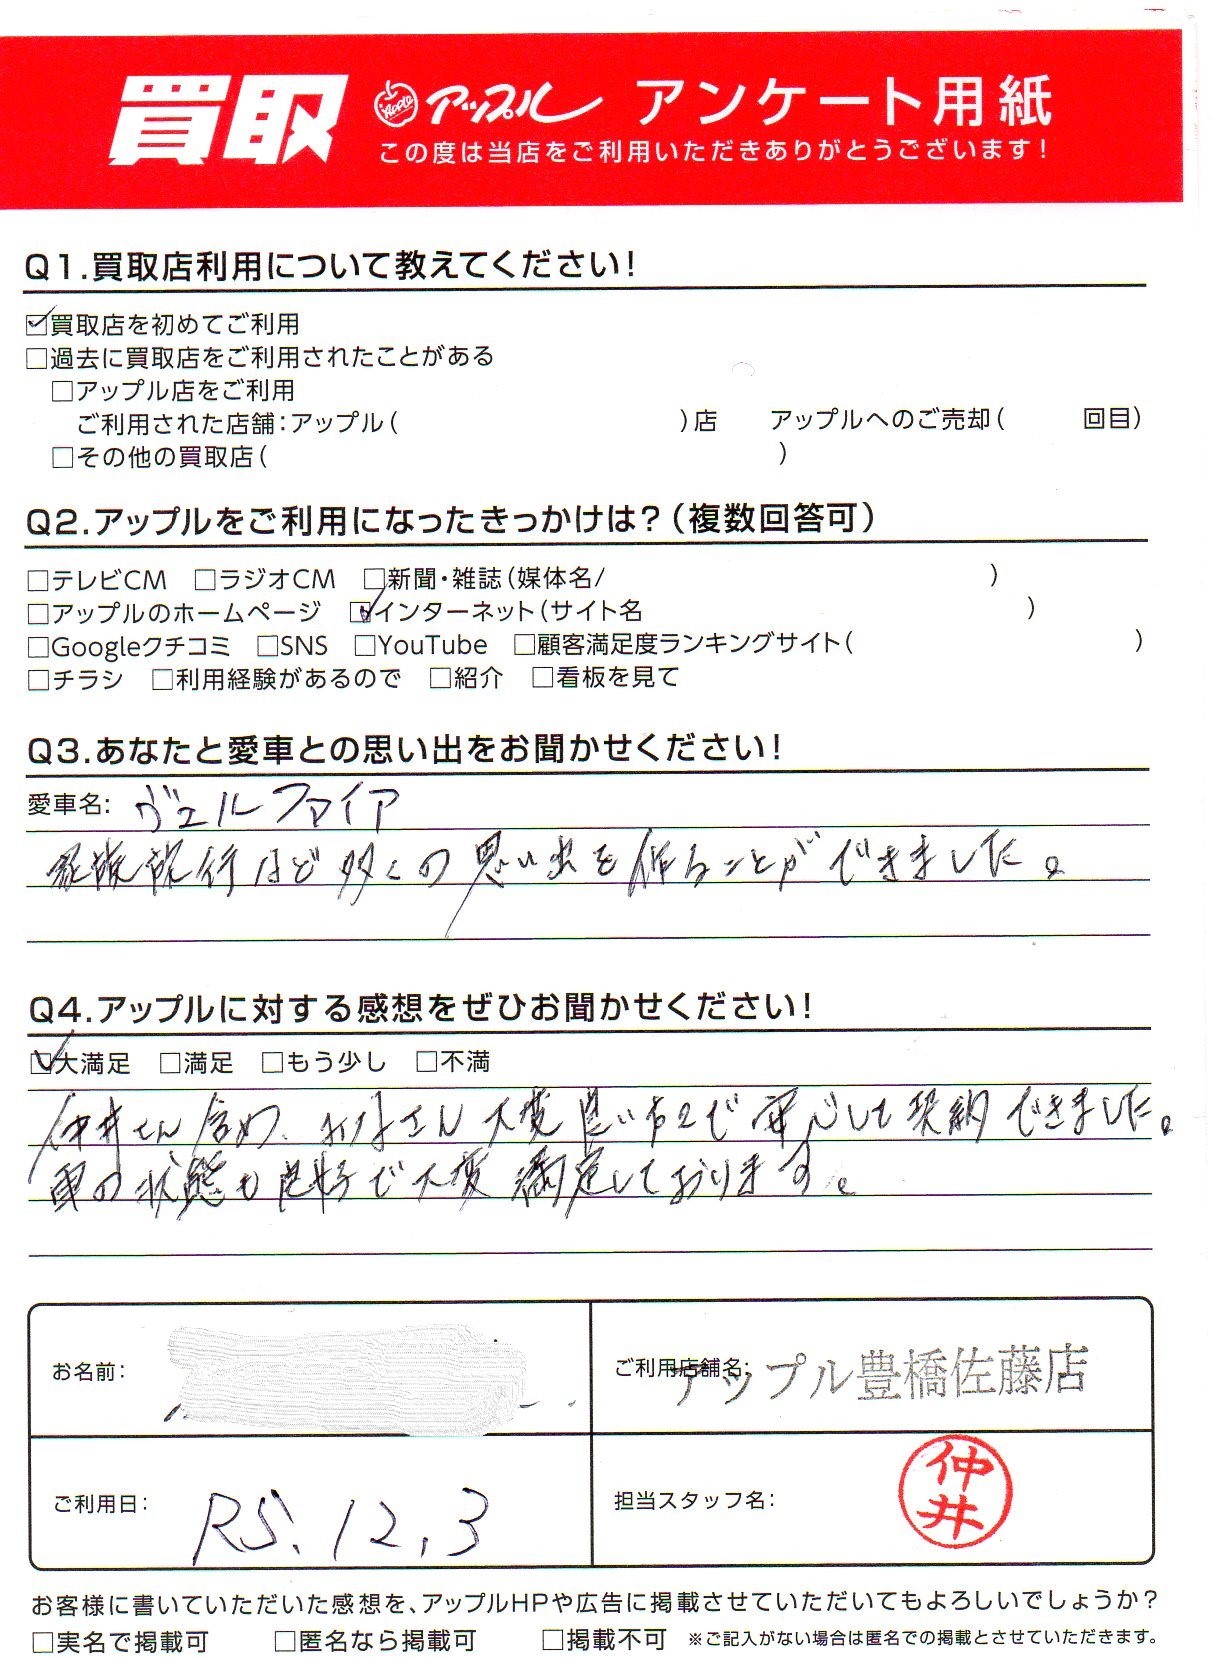 買取 Apple アップル アンケート用紙
この度は当店をご利用いただきありがとうございます!
Q1.買取店利用について教えてください!
☑買取店を初めてご利用
□過去に買取店をご利用されたことがある
□アップル店をご利用
ご利用された店舗:アップル( )店 アップルへのご売却( 回目)
□その他の買取店( )
Q2.アップルをご利用になったきっかけは?(複数回答可)
□テレビCM □ラジオCM □新聞・雑誌(媒体名/ )
□アップルのホームページ ☑インターネット(サイト名 )
□Googleクチコミ □SNS □YouTube □顧客満足度ランキングサイト( )
□チラシ □利用経験があるので □紹介 □看板を見て
Q3.あなたと愛車との思い出をお聞かせください!
愛車名: ヴェルファイア
家族旅行など多くの思い出を作ることができました。
Q4.アップルに対する感想をぜひお聞かせください!
☑大満足 □満足 □もう少し □不満
仲井さん含め、お母さん大変良い方々で安心して契約できました。
車の状態も良好で大変満足しております。
お名前:
ご利用店舗名: アップル豊橋佐藤店
ご利用日: R5.12.3
担当スタッフ名: 仲井
お客様に書いていただいた感想を、アップルHPや広告に掲載させていただいてもよろしいでしょうか?
□実名で掲載可 □匿名なら掲載可 □掲載不可 ※ご記入がない場合は匿名での掲載とさせていただきます。